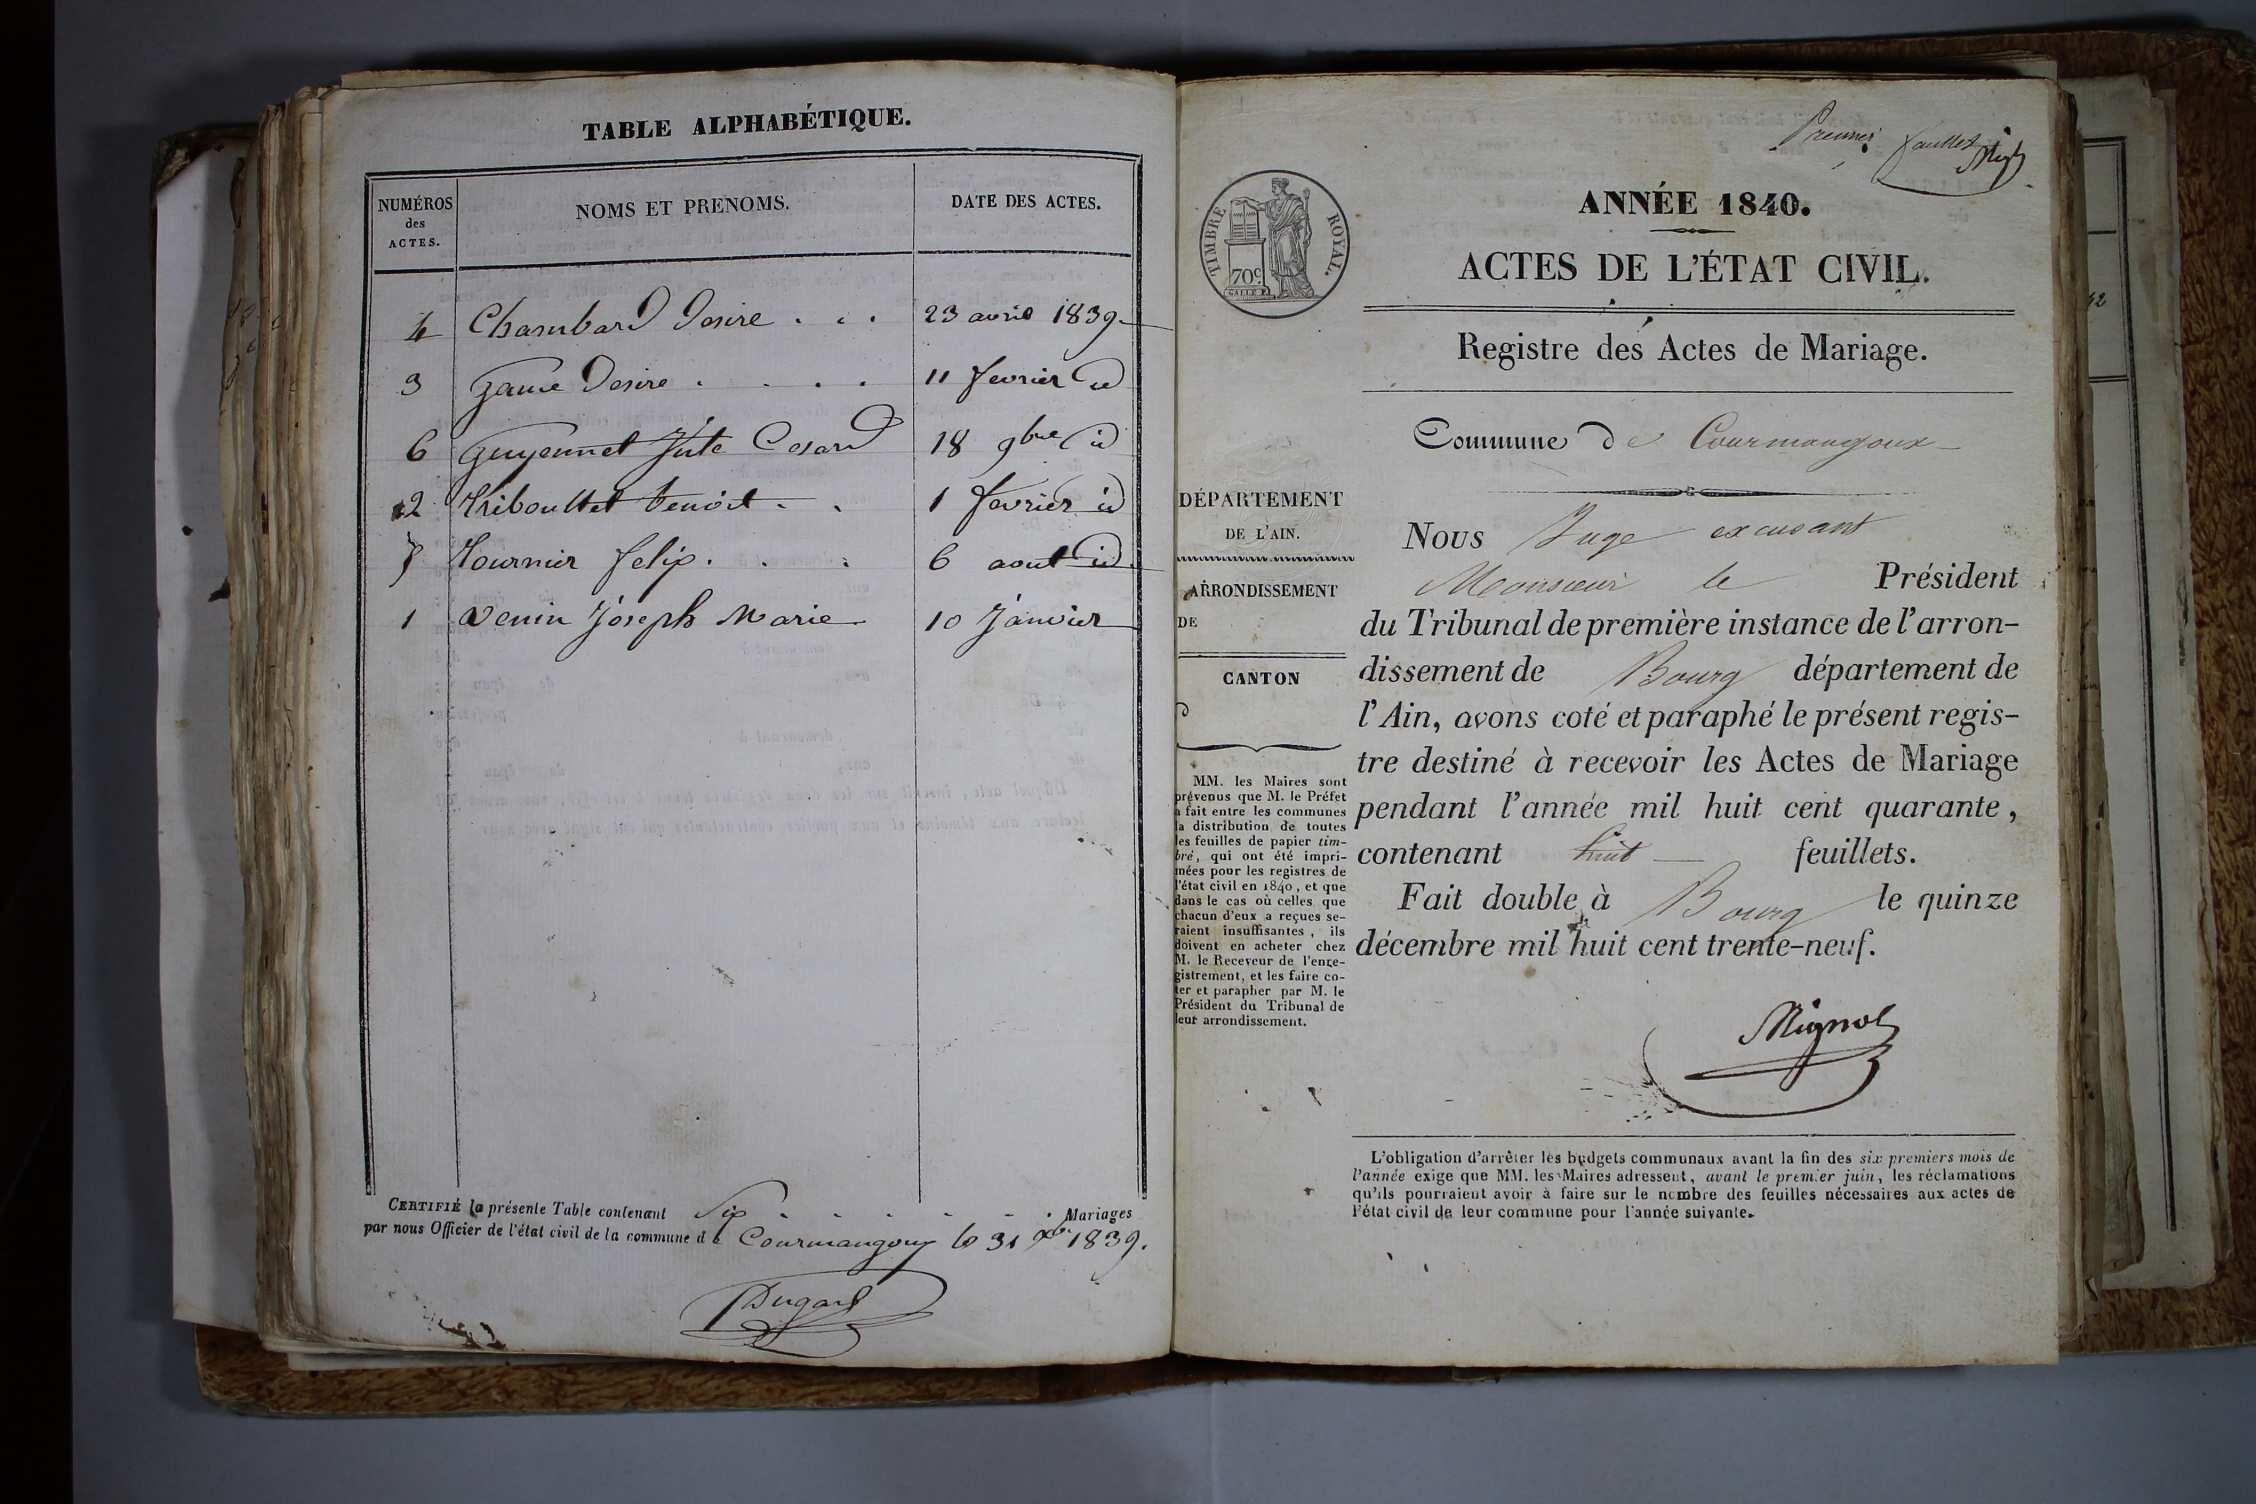 TABLE ALPHABÉTIQUE.
NUMÉROS des ACTES. NOMS ET PRENOMS. DATE DES ACTES.
4 Chambard Desire . . . 23 avril 1839
3 Desire . . . . 11 fevrier id
6 Guyennet Jule Cesard 18 9bre id
2 Triboullet benoit . . 1 fevrier id
5 Tournier felix . . . 6 aout id
1 Venin Joseph Marie 10 Janvier
CERTIFIÉ la présente Table contenant Six . . . . . . Mariages
par nous Officier de l'état civil de la commune de Courmangoux le 31 xbre 1839.
Dugard
Premier feuillet
TIMBRE ROYAL.
70c
ANNÉE 1840.
ACTES DE L'ÉTAT CIVIL.
Registre des Actes de Mariage.
Commune de Courmangoux
DÉPARTEMENT
DE L'AIN.
ARRONDISSEMENT
DE
CANTON
MM. les Maires sont
prévenus que M. le Préfet
a fait entre les communes
la distribution de toutes
les feuilles de papier tim-
bré, qui ont été impri-
mées pour les registres de
l'état civil en 1840, et que
dans le cas où celles que
chacun d'eux a reçues se-
raient insuffisantes, ils
doivent en acheter chez
M. le Receveur de l'enre-
gistrement, et les faire co-
ter et parapher par M. le
Président du Tribunal de
leur arrondissement.
Nous Juge excusant
Monsieur le Président
du Tribunal de première instance de l'arron-
dissement de Bourg département de
l'Ain, avons coté et paraphé le présent regis-
tre destiné à recevoir les Actes de Mariage
pendant l'année mil huit cent quarante,
contenant huit feuillets.
Fait double à Bourg le quinze
décembre mil huit cent trente-neuf.
Mignot
L'obligation d'arrêter les budgets communaux avant la fin des six premiers mois de
l'année exige que MM. les Maires adressent, avant le premier juin, les réclamations
qu'ils pourraient avoir à faire sur le nombre des feuilles nécessaires aux actes de
l'état civil de leur commune pour l'année suivante.